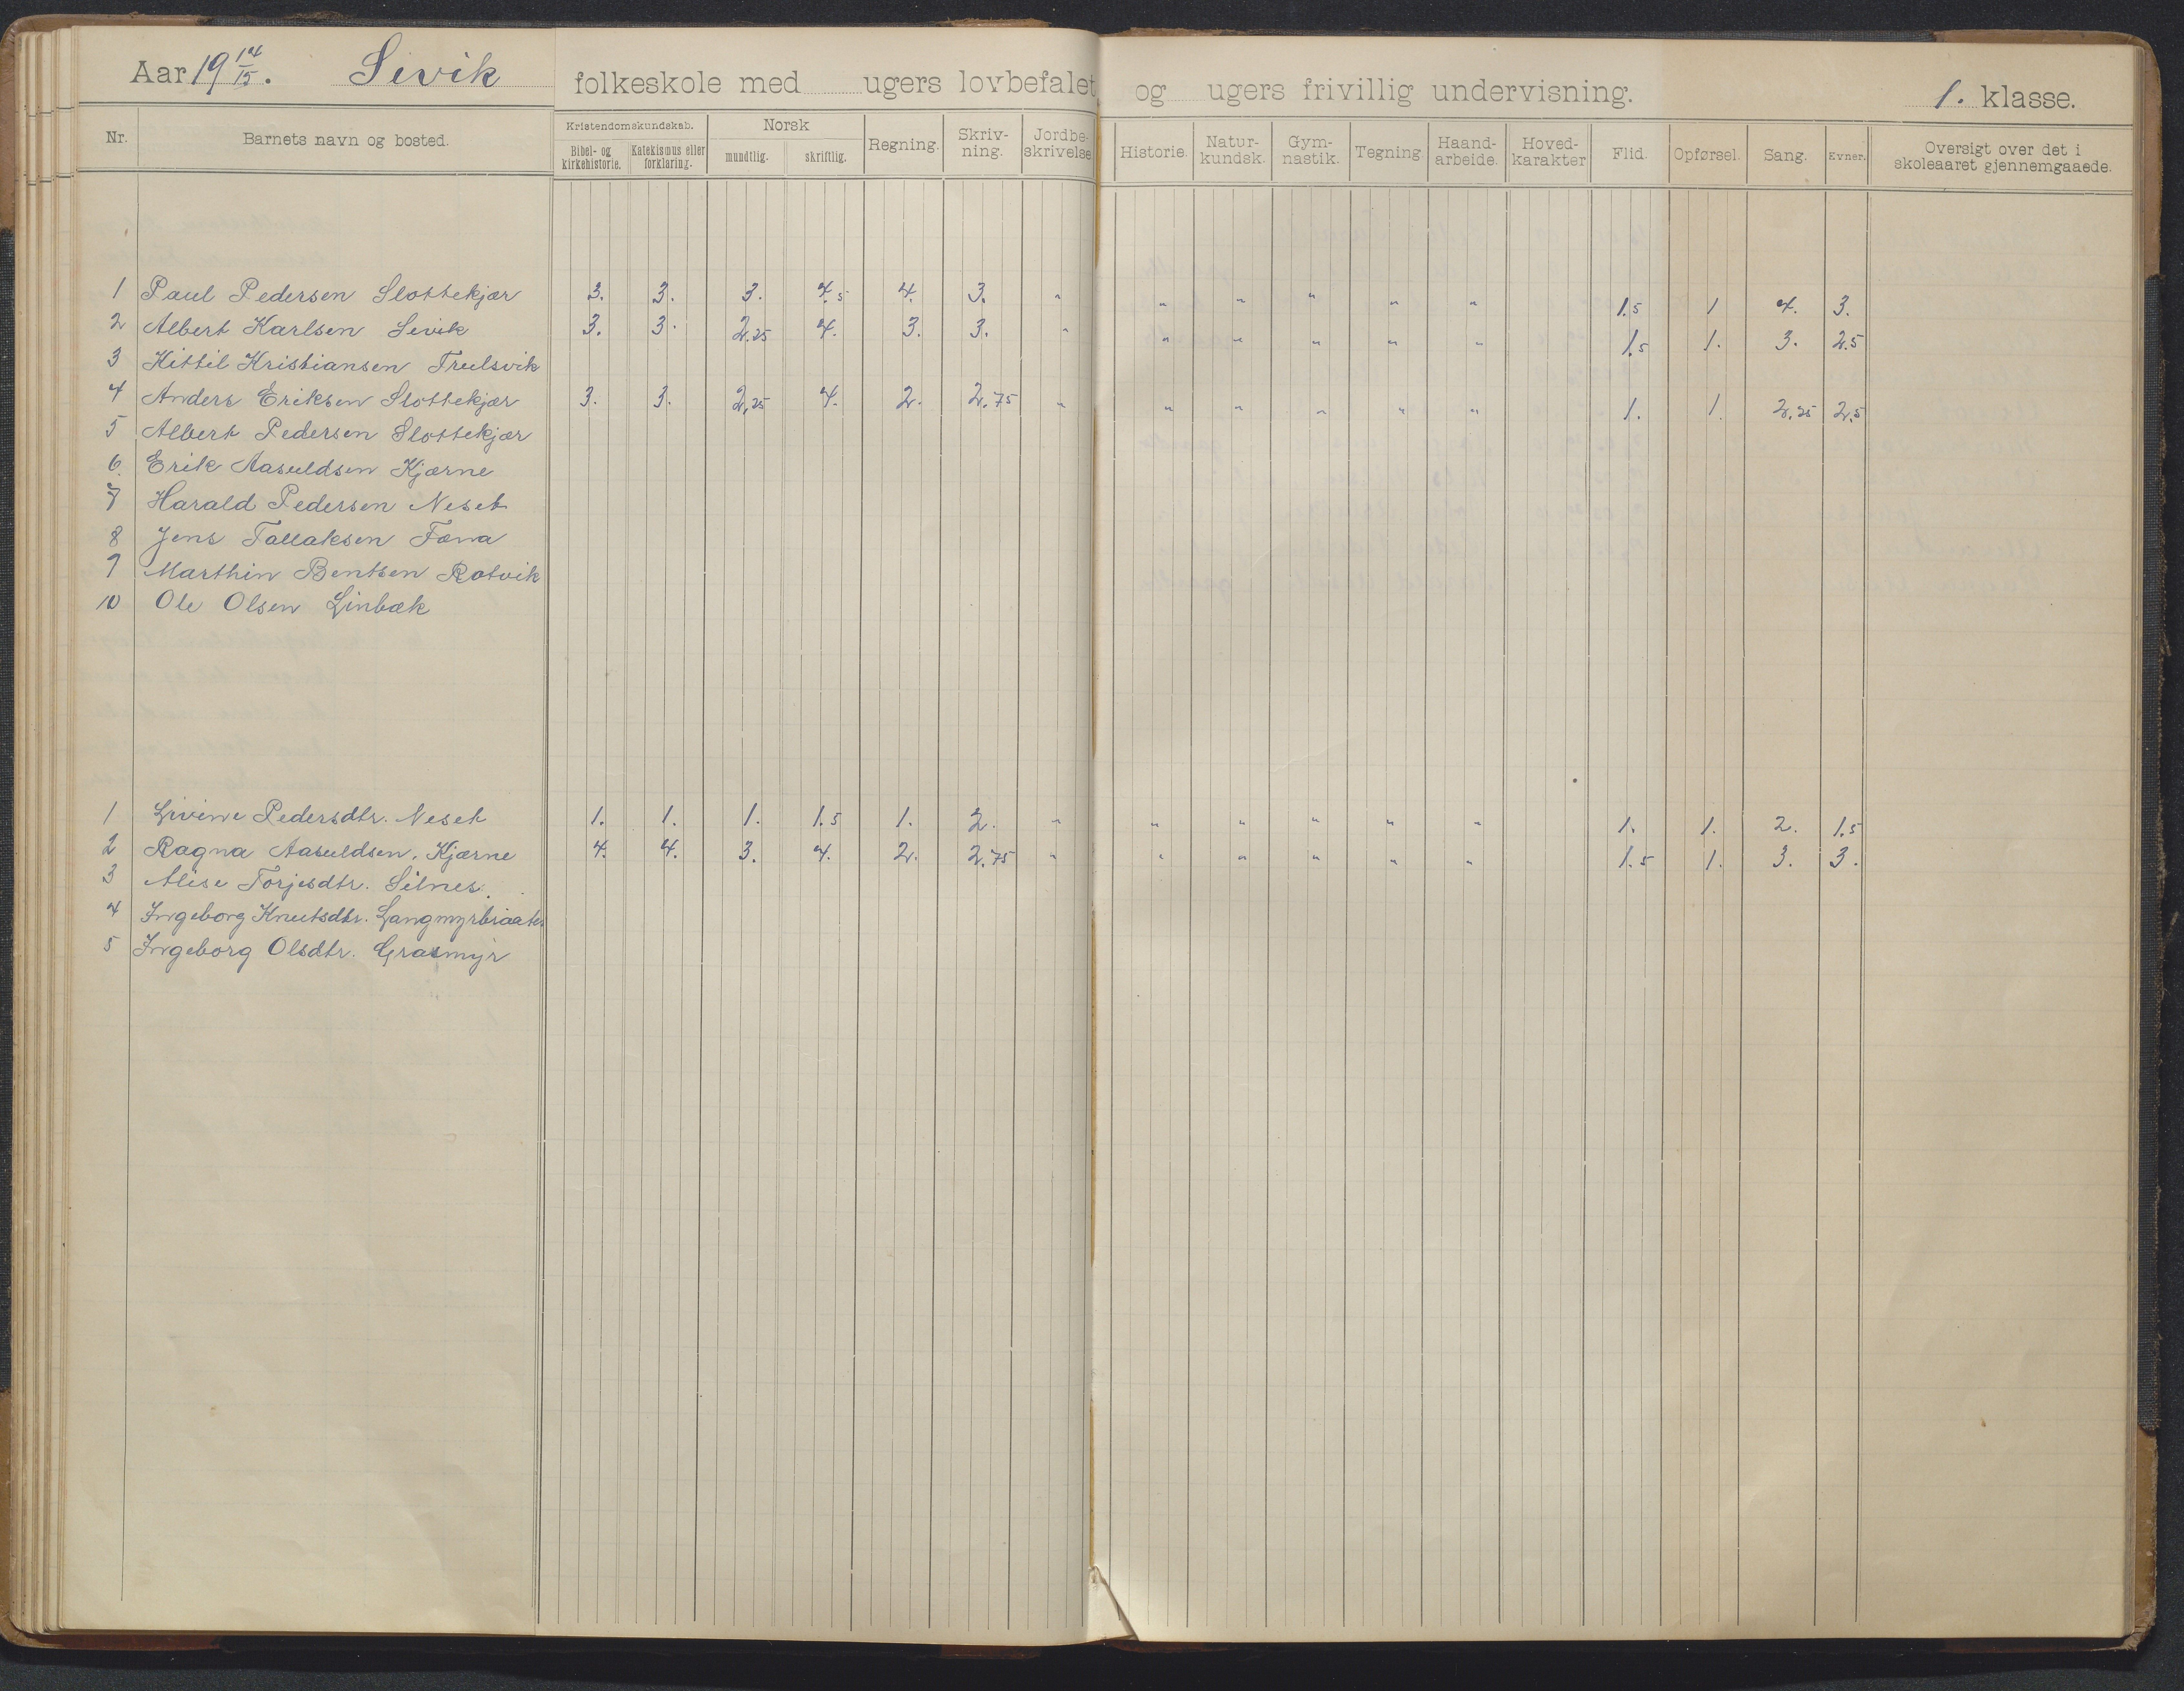 Aar 19 14/15. Sivik folkeskole med ugers lovbefalet og ugers frivillig undervisning. 1. klasse.
Nr. Barnets navn og bosted. Kristendomskundskab. Bibel- og kirkehistorie. Katekismus eller forklaring. Norsk mundtlig. skriftlig. Regning. Skriv-ning. Jordbe-skrivelse Historie. Natur-kundsk. Gym-nastik. Tegning Haand-arbeide. Hoved-karakter Flid. Opførsel. Sang. Evner. Oversigt over det i skoleaaret gjennemgaaede.
1 Paul Pedersen Slottekjær 3. 3. 3. 4.5 4. 3. " " " " " " 1.5 1 4. 3.
2 Albert Karlsen Sivik 3. 3. 2.25 4. 3. 3. " " " " " " 1.5 1. 3. 2.5
3 Kittil Kristiansen Trulsvik
4 Anders Eriksen Slottekjær 3. 3. 2.25 4. 2. 2.75 " " " " " " 1. 1. 2.25 2.5
5 Albert Pedersen Slottekjær
6. Erik Aasuldsen Kjærne
7 Harald Pedersen Neset
8 Jens Tallaksen
9 Marthin Bentsen Rotvik
10 Ole Olsen Linbæk
1 Livine Pedersdtr. Neset 1. 1. 1. 1.5 1. 2. " " " " " " 1. 1. 2. 1.5
2 Ragna Aasuldsen. Kjærne 4. 4. 3. 4. 2. 2.75 " " " " " " 1.5 1. 3. 3.
3 Alise Torjesdtr. Silnes.
4 Ingeborg Knutsdtr.
5 Ingeborg Olsdtr. Grasmyr